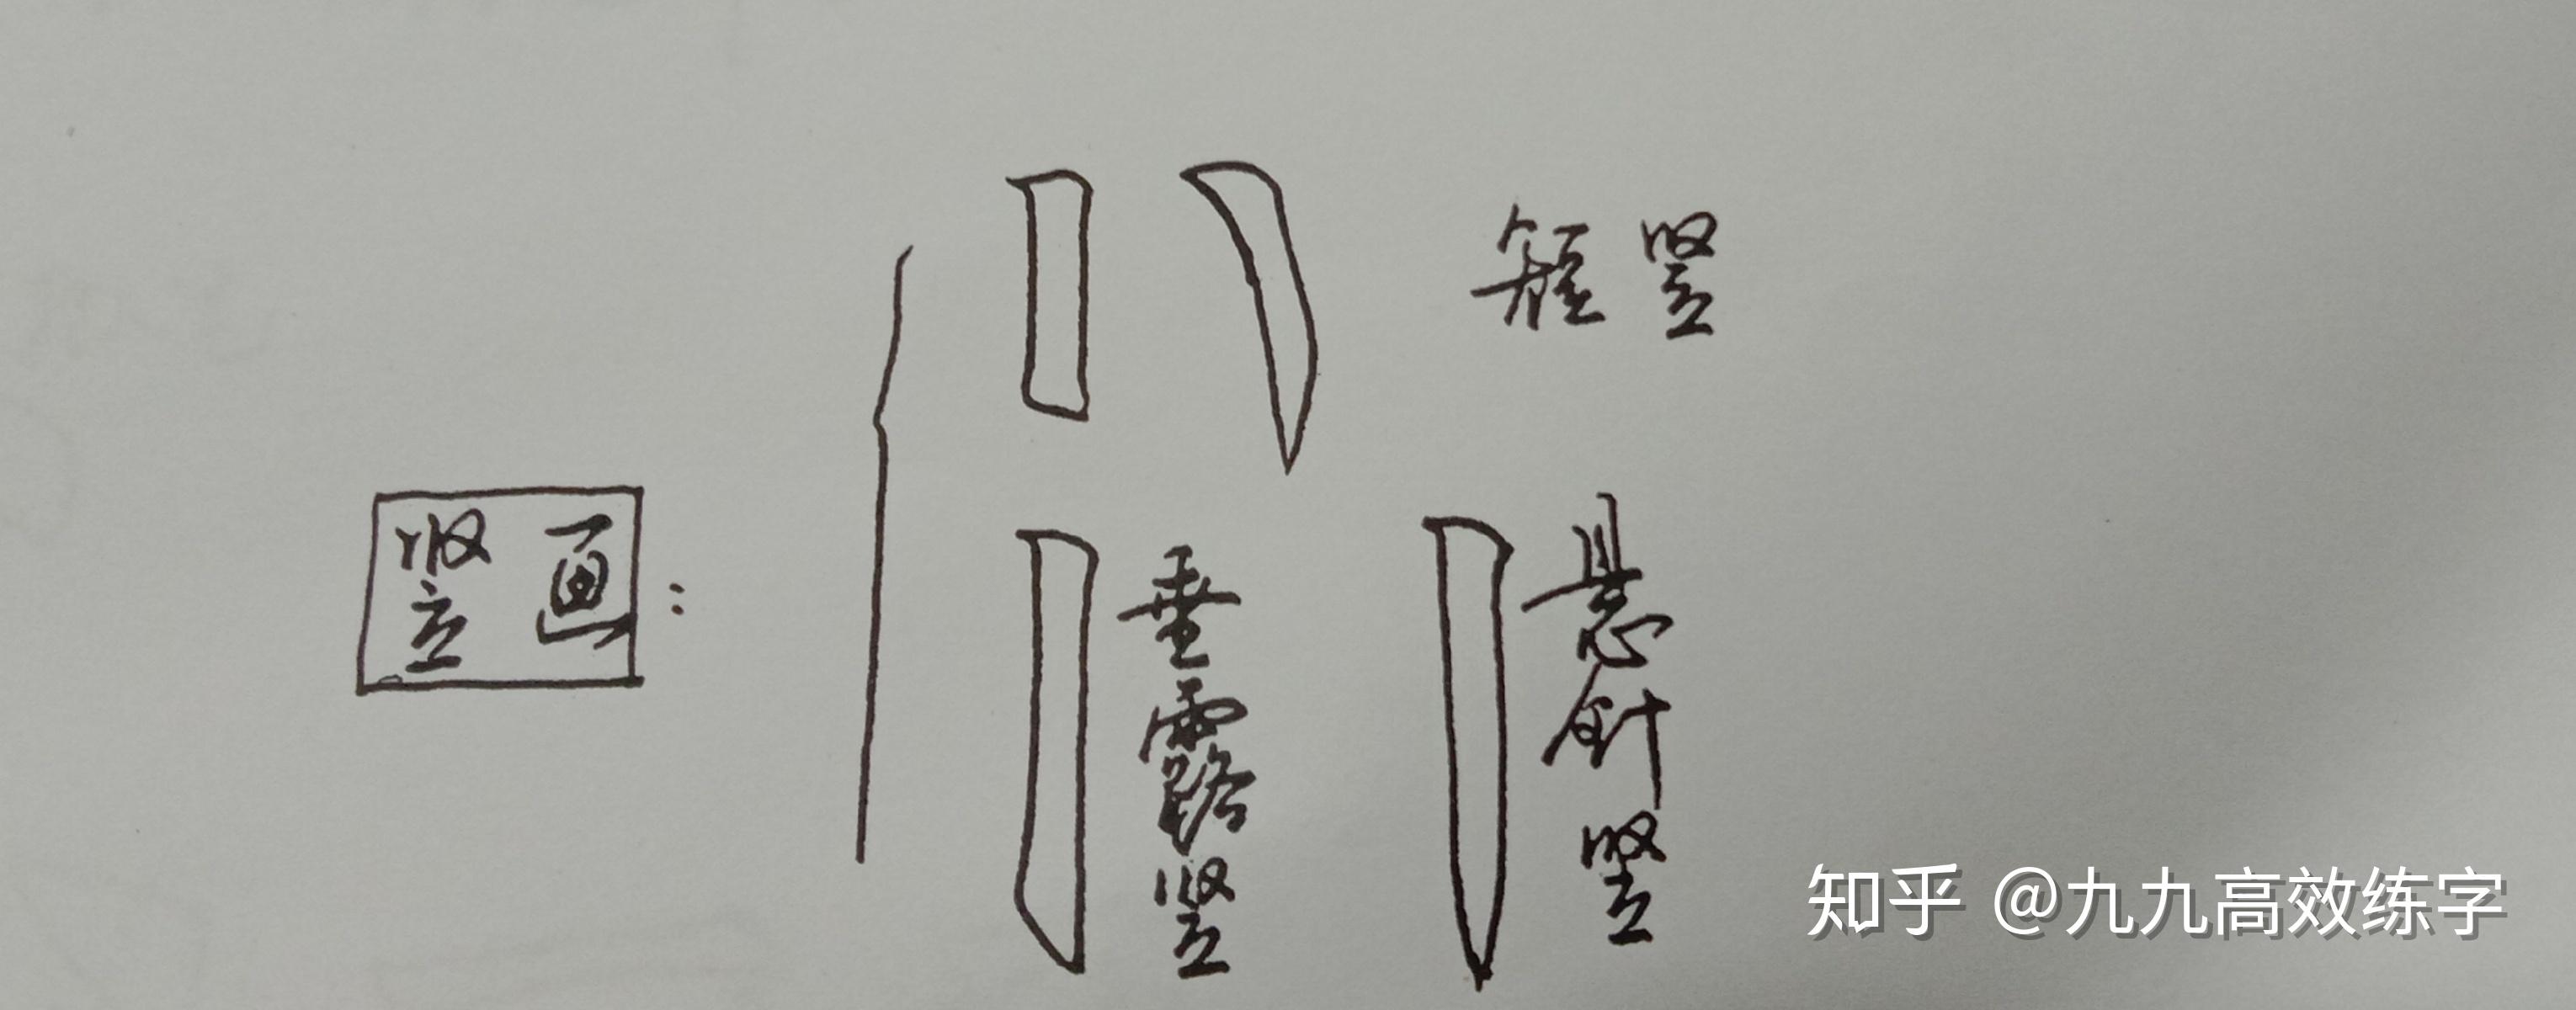 竖画：
短竖
垂露竖
悬针竖
知乎 @九九高效练字